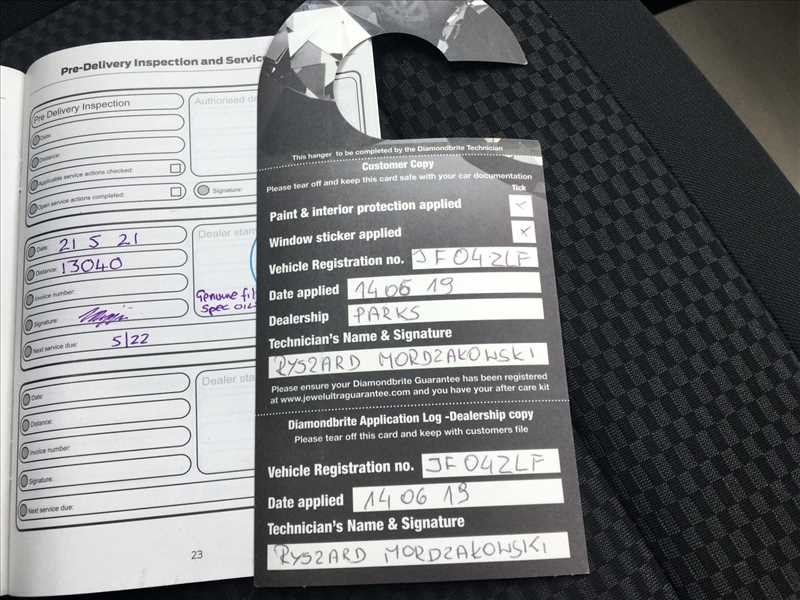 Pre-Delivery Inspection and Servic
Pre Delivery Inspection
Authorised de
Date:
Distance:
Applicable service actions checked:
Open service actions completed:
Signature:
Date: 21 5 21
Dealer stam
Distance: 13040
Invoice number:
Genuine fil
Spec oil
Signature:
Next service due: 5/22
Date:
Dealer sta
Distance:
Invoice number:
Signature:
Next service due:
23
This hanger to be completed by the Diamondbrite Technician
Customer Copy
Please tear off and keep this card safe with your car documentation
Tick
Paint & interior protection applied x
Window sticker applied x
Vehicle Registration no. JF04ZLF
Date applied 14 06 19
Dealership PARKS
Technician's Name & Signature
RYSZARD MORDZAKOWSKI
Please ensure your Diamondbrite Guarantee has been registered
at www.jewelultraguarantee.com and you have your after care kit
Diamondbrite Application Log -Dealership copy
Please tear off this card and keep with customers file
Vehicle Registration no. JF04ZLF
Date applied 14 06 19
Technician's Name & Signature
RYSZARD MORDZAKOWSKI